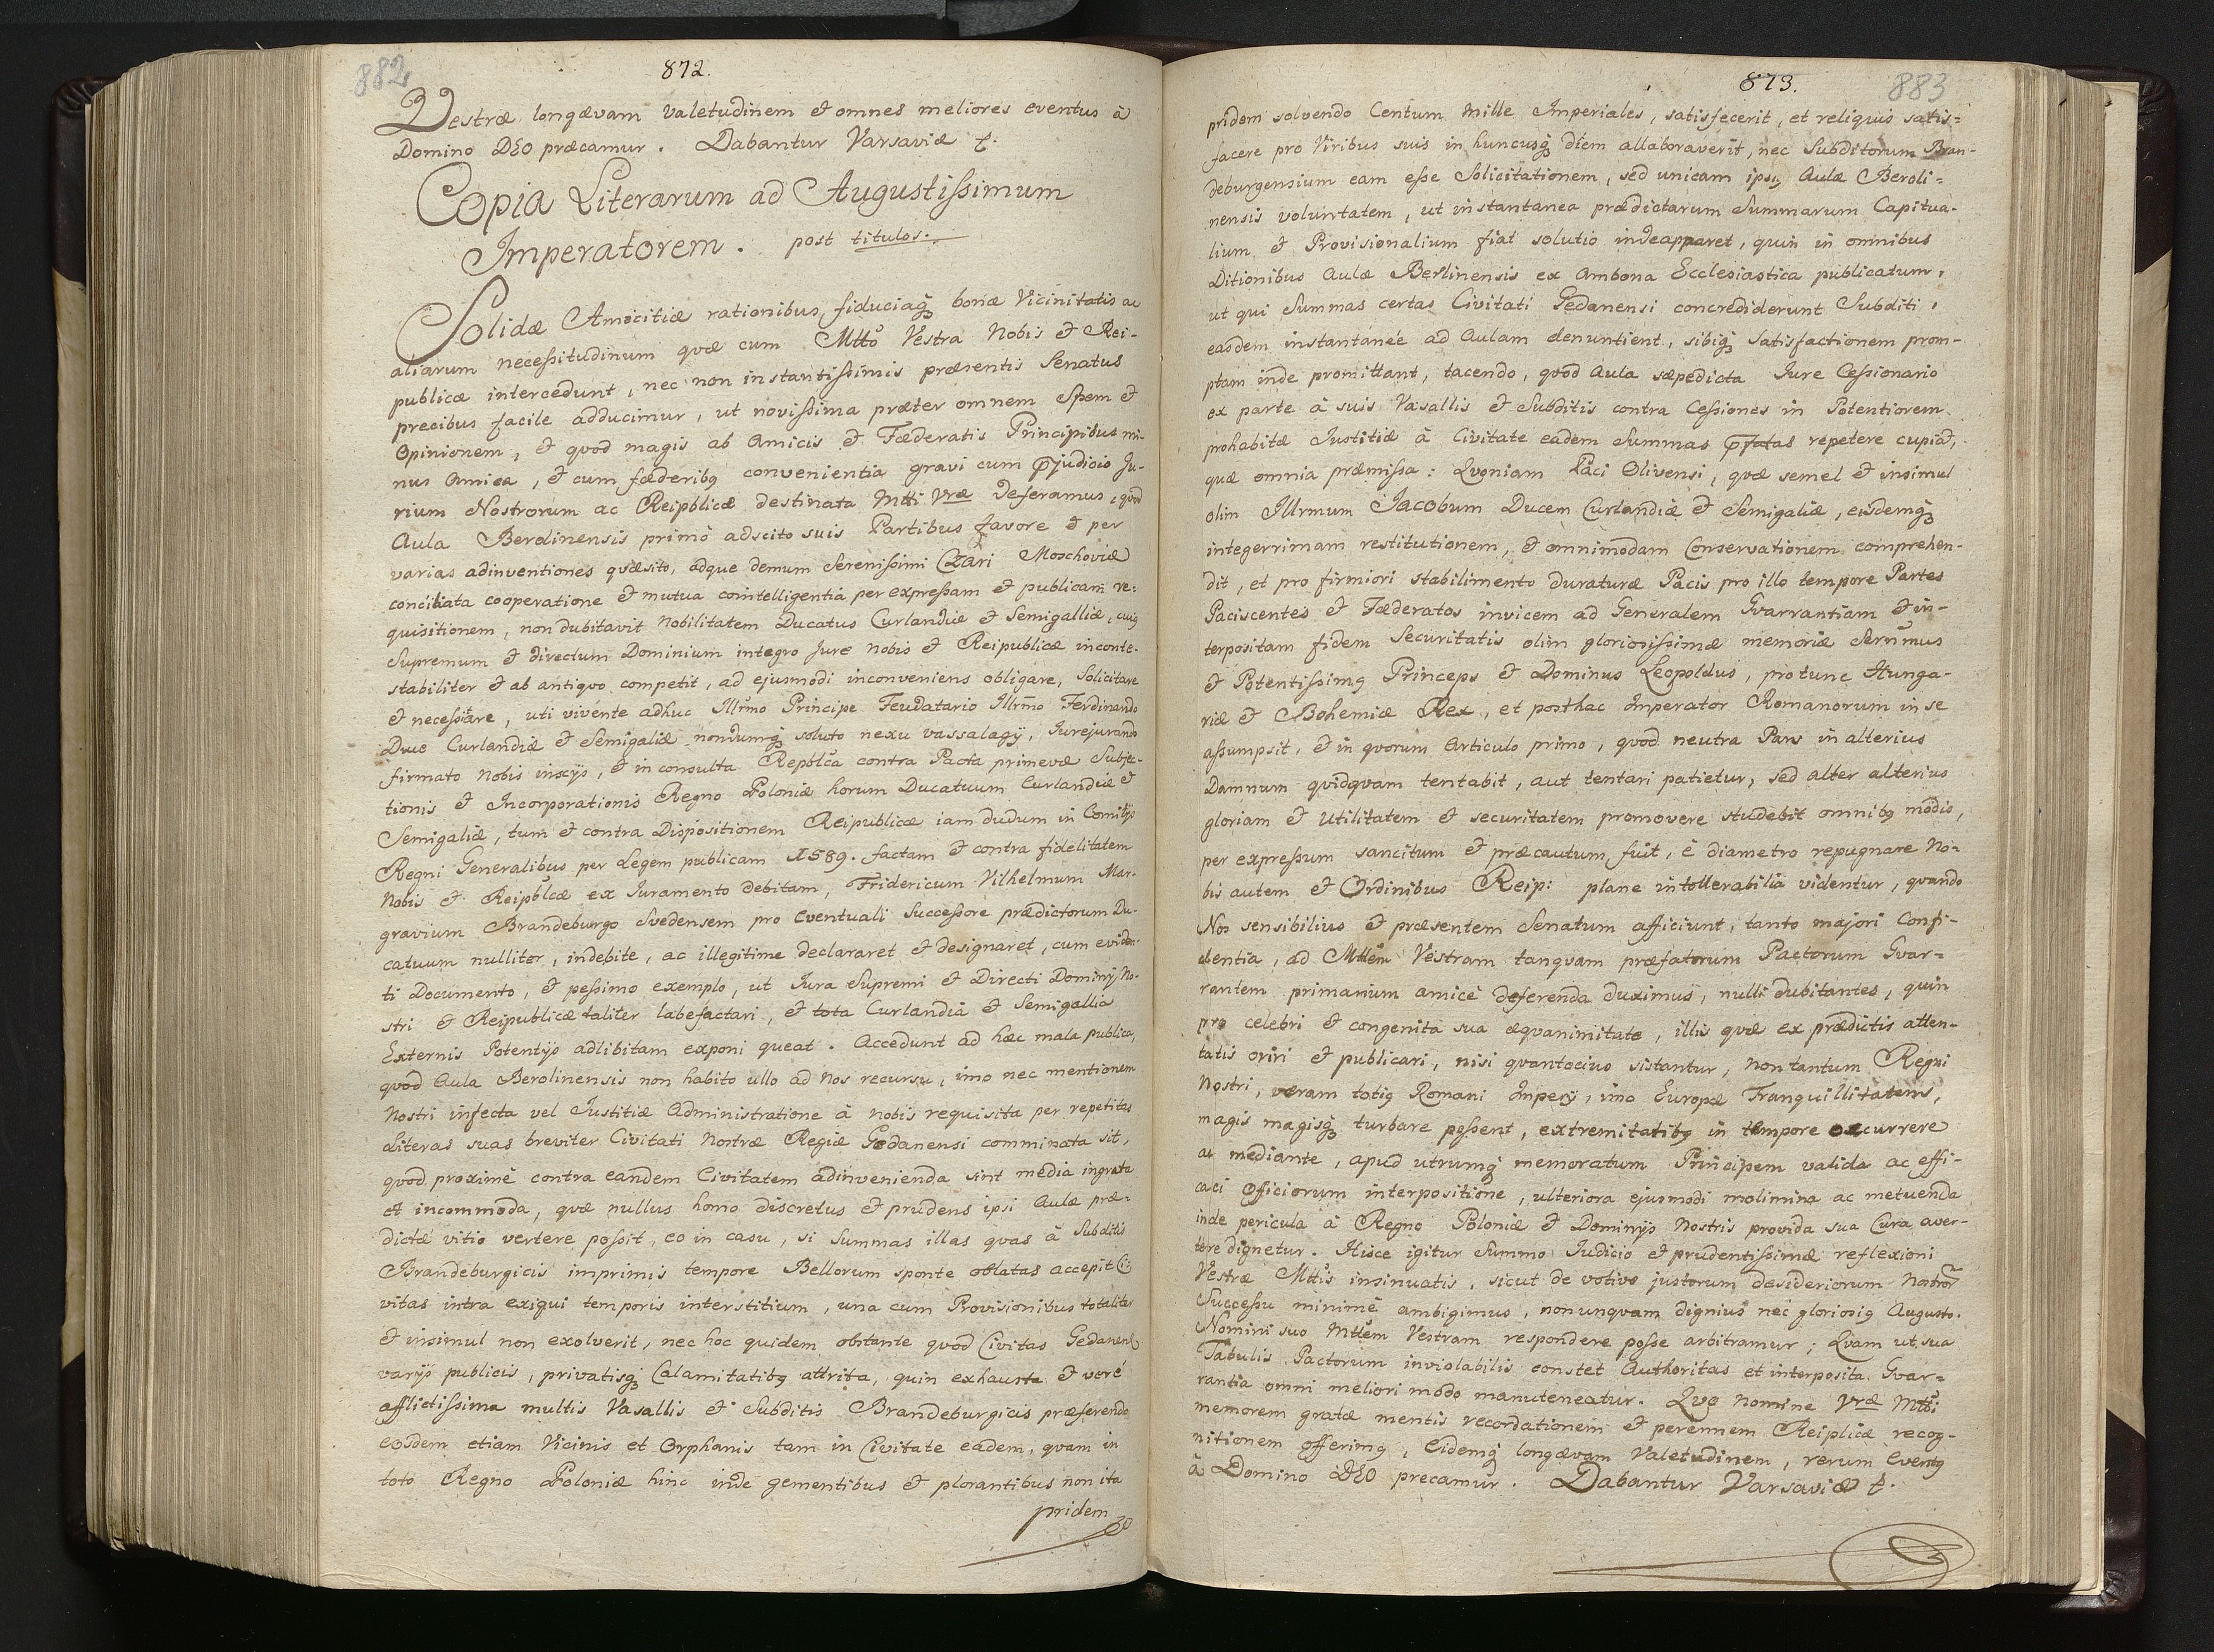 882
872.
Vestræ longævam valetudinem & omnes meliores eventus à
Domino DEO præcamur. Dabantur Varsaviæ
Copia Literarum ad Augustissimum
Imperatorem. post titulos.
Solidæ Amicitiæ rationibus, fiduciaq3 bonæ Vicinitatis ac
aliarum necessitudinum quæ cum Mtto Vestra Nobis & Rei-
publicæ intercedunt, nec non instantissimis præsentis Senatus
precibus facile adducimur, ut novissima præter omnem Spem &
Opinionem, & quod magis ab Amicis & Fæderatis Principibus mi-
nus Amica, & cum fæderibq convenientia gravi cum pjudicio Ju-
rium Nostrorum ac Reipblicæ destinata Mtti Vræ deferamus, quod
Aula Berolinensis primò adscito suis Partibus favore & per
varias adinventiones quæsito, adque demum Serenissimi Czari Moschoviæ
conciliata cooperatione & mutua cointelligentiâ per expressam & publicam re:
quisitionem, non dubitavit Nobilitatem Ducatus Curlandiæ & Semigalliæ, cuiq
Supremum & directum Dominium integro Jure Nobis & Reipublicæ inconte-
stabiliter & ab antiqvo competit, ad ejusmodi inconveniens obligare, Solicitare
& necessitare, uti vivente adhuc Illrmo Principe Feudatario Illrmo Ferdinando
Duce Curlandiæ & Semigaliæ nondumq3 soluto nexu vassalagÿ, Jurejurando
firmato Nobis inscÿs, & in consulta Repblca contra Pacta primevæ Subje-
tionis & Incorporationis Regno Poloniæ horum Ducatuum Curlandiæ &
Semigaliæ, tum & contra Dispositionem Reipublicæ iam dudum in Comitÿs
Regni Generalibus per Legem publicam 1589. factam & contra fidelitatem
Nobis & Reipblcæ ex Juramento debitam, Fridericum Vilhelmum Mar-
gravium Brandeburgo Svedensem pro Eventuali Successore prædictorum Du-
catuum nulliter, indebite, ac illegitime declararet & designaret, cum eviden-
ti Documento, & pessimo exemplo, ut Jura Supremi & Directi Dominÿ No-
stri & Reipublicæ taliter labefactari, & tota Curlandiâ & Semigallia
Externis Potentÿs adlibitam exponi queat. Accedunt ad hæc mala publica,
quod Aula Berolinensis non habito ullo ad Nos recursu, imo nec mentionem
Nostri infecta vel Justitiæ Administratione à nobis requisita per repetitas
Literas suas breviter Civitati Nostræ Regiæ Gedanensi comminata sit,
quod proximè contra eandem Civitatem adinvenienda sint media ingrata
et incommoda, quæ nullus homo discretus & prudens ipsi Aulæ præ-
dictæ vitio vertere possit, eo in casu, si Summas illas quas à Subditis
Brandeburgicis imprimis tempore Bellorum sponte oblatas accepit Ci-
vitas intra exigui temporis interstitium, una cum Provisionibus totaliter
& insimul non exolverit, nec hoc quidem obstante quod Civitas Gedanens
varÿs publicis, privatisq3 Calamitatibq attrita, quin exhausta & verè
afflictissima multis Vasallis & Subditis Brandeburgicis præferendo
eosdem etiam Vicinis et Orphanis tam in Civitate eadem, quam in
toto Regno Poloniæ hinc inde gementibus & plorantibus non ita
pridem
873.
883
pridem solvendo Centum Mille Imperiales, satisfecerit, et reliquis satis=
facere pro Viribus suis in huncusq3 diem allaboraverit, nec Subditorum Bran-
deburgensium eam esse Solicitationem, sed unicam ipsiq Aulæ Beroli=
nensis voluntatem, ut instantanea prædictarum Summarum Capitua-
lium & Provisionalium fiat solutio indeapparet, quin in omnibus
Ditionibus Aulæ Berlinensis ex Ambona Ecclesiastica publicatum,
ut qui Summas certas Civitati Gedanensi concrediderunt Subditi,
easdem instantaneè ad Aulam denuntient, sibiq3 satisfactionem prom-
ptam inde promittant, tacendo, quod Aula sæpedicta Jure Cessionario
ex parte à suis Vasallis & Subditis contra Cessiones in Potentiorem
prohabitæ Justitiæ à Civitate eadem Summas pfatas repetere cupiat,
quæ omnia præmissa: Qvoniam Paci Olivensi, quæ semel & insimul
olim Illrmum Jacobum Ducem Curlandiæ & Semigaliæ, eiusdemq3
integerrimam restitutionem, & omnimodam Conservationem comprehen-
dit, et pro firmiori stabilimento duraturæ Pacis pro illo tempore Partes
Paciscentes & Fæderatos invicem ad Generalem Gvarrantiam & in-
terpositam fidem Securitatis olim gloriosissimæ memoriæ Sernmus
& Potentissimq Princeps & Dominus Leopoldus, pro tunc Hunga-
riæ & Bohemiæ Rex, et posthac Imperator Romanorum in se
assumpsit, & in qvorum Articulo primo, quod neutra Pars in alterius
Damnum qvidqvam tentabit, aut tentari patietur, sed alter alterius
gloriam & utilitatem & securitatem promovere studebit omnibq modis,
per expressum sancitum & præcautum fuit, è diametro repugnare No-
bis autem & Ordinibus Reip: plane intollerabilia videntur, qvando
Nos sensibilius & præsentem Senatum afficiunt, tanto majori Confi-
dentia, ad Mttem Vestram tanqvam præfatorum Pactorum Gvar=
rantem primarium amicè deferenda duximus, nulli dubitantes, quin
pro celebri & congenita sua æqvanimitate, illis quæ ex prædictis atten-
tatis oriri & publicari, nisi qvantocius sistantur, non tantum Regni
Nostri, verum totiq Romani Imperÿ, imo Europæ Tranquillitatem,
magis magisq3 turbare possent, extremitatibq in tempore occurrere
ac mediante, apud utrumq3 memoratum Principem valida ac effi-
caci Officiorum interpositione, ulteriora ejusmodi molimina ac metuenda
inde pericula à Regno Poloniæ & Dominÿs Nostris provida sua Cura aver-
tere dignetur. Hisce igitur Summo Judicio & prudentissimæ reflexioni
Vestræ Mttis insinuatis, sicut de votivo justorum desideriorum Nostror
Successu minimè ambigimus, non unqvam dignius nec gloriosiq Augusto
Nomini suo Mttem Vestram respondere posse arbitramur; Qvam ut sua
Tabulis Pactorum inviolabilis constet Authoritas et interposita Gvar=
rantia omni meliori modo manuteneatur. Qvo Nomine Vræ Mtti
memorem gratæ mentis recordationem & perennem Reiplicæ recog-
nitionem offerimq, Eidemq3 longævam Valetudinem, rerum Eventq
à Domino DEO precamur. Dabantur Varsaviæ